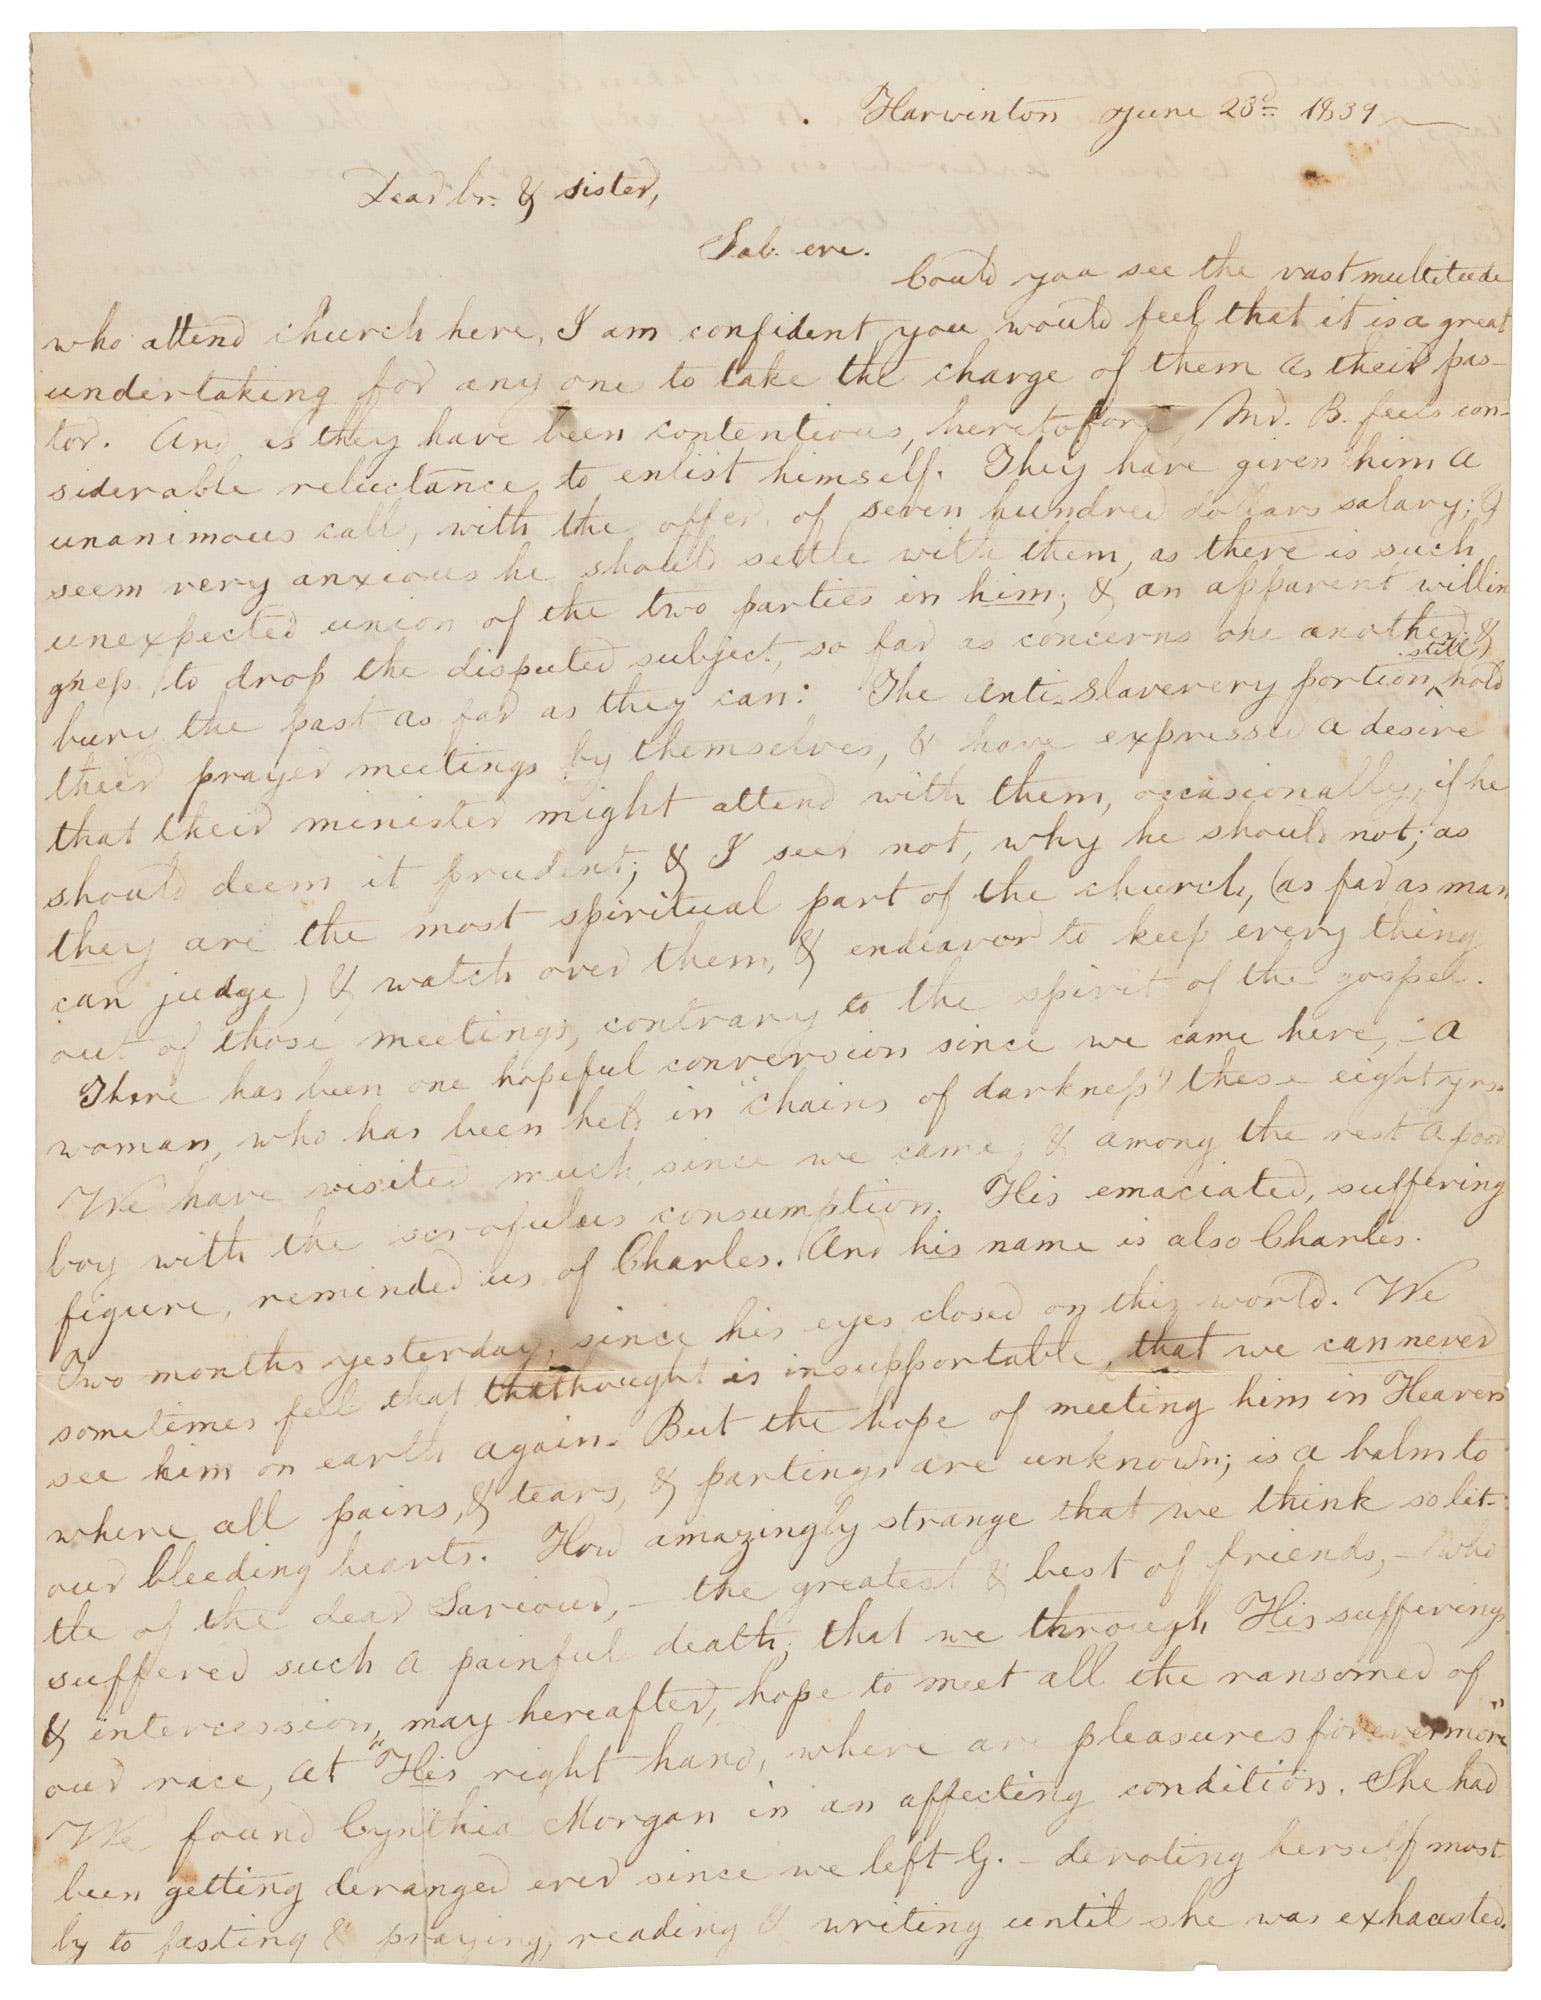 Harwinton June 23d 1839
Dear br. & sister,
Sab. eve.
Could you see the vast multitude
who attend church here, I am confident you would feel that it is a great
undertaking for any one to take the charge of them as their pas-
tor. And as they have been contentious, heretofore, Mr. B. feels con-
siderable reluctance to enlist himself. They have given him a
unanimous call, with the offer of seven hundred dollars salary; &
seem very anxious he should settle with them, as there is such
unexpected union of the two parties in him; & an apparent willin
gness to drop the disputed subject, so far as concerns one another &
bury the past as far as they can: The Anti-Slaverery portion, still hold
their prayer meetings by themselves, & have expressed a desire
that their minister might attend with them, occasionally, if he
should deem it prudent; & I see not, why he should not; as
they are the most spiritual part of the church, (as far as man
can judge) & watch over them, & endeavor to keep every thing
out of those meetings, contrary to the spirit of the gospel.
There has been one hopeful conversion since we came here, - a
woman, who has been held in "chains of darkness" these eight yrs.
We have visited much, since we came; & among the rest a poor
boy with the scrofulus consumption. His emaciated, suffering
figure, reminded us of Charles. And his name is also Charles.
Two months yesterday, since his eyes closed on this world. We
sometimes feel that tha thought is insupportable, that we can never
see him on earth again. But the hope of meeting him in Heaven
where all pains, & tears, & partings are unknown; is a balm to
our bleeding hearts. How amazingly strange that we think so lit-
tle of the dear Saviour, - the greatest & best of friends, - who
suffered such a painful death; that we through His sufferings
& intercession, may hereafter, hope to meet all the ransomed of
our race, at "His right hand, where are pleasures forevermore"
We found Cynthia Morgan in an affecting condition. She had
been getting deranged ever since we left G. - devoting herself most-
ly to fasting & praying, reading & writing until she was exhausted.